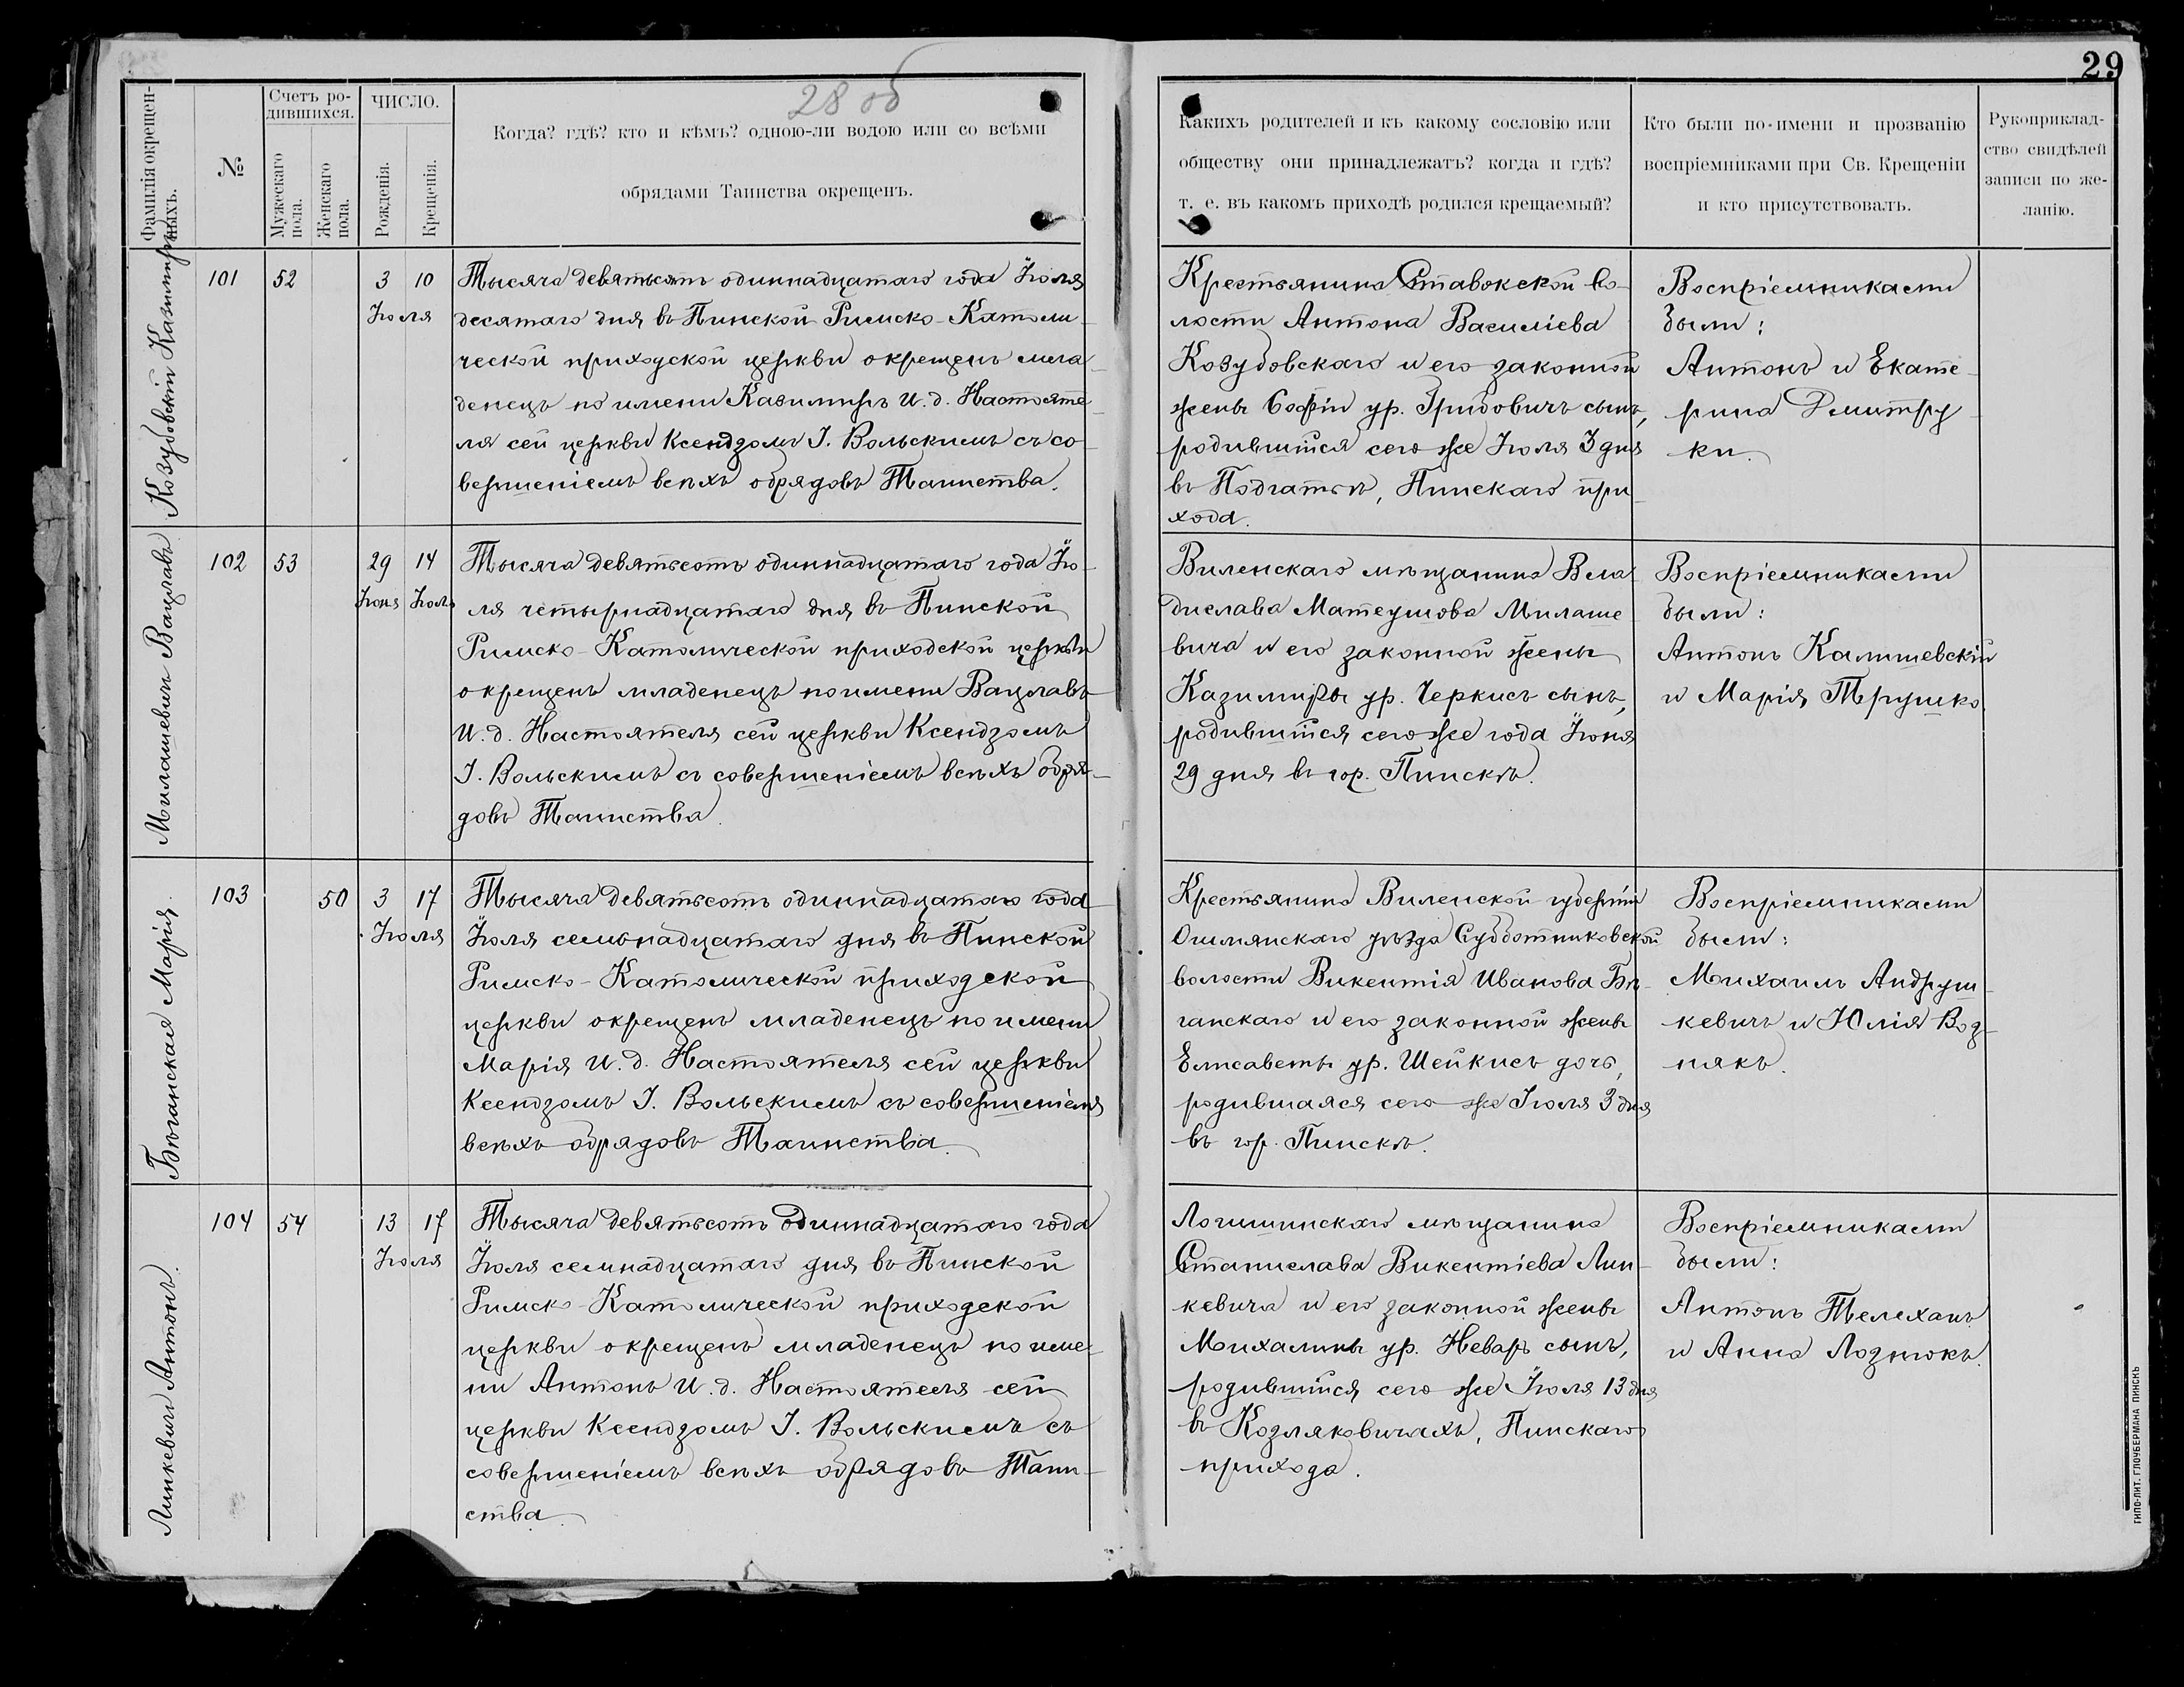 28 об
29
Фамилія окрещен-
ныхъ.
№
Счетъ ро-
дившихся.
Мужескаго
пола.
Женскаго
пола.
ЧИСЛО.
Рожденія.
Крещенія.
Когда? гдѣ? кто и кѣмъ? одною-ли водою или со всѣми
обрядами Таинства окрещенъ.
Какихъ родителей и къ какому сословію или
обществу они принадлежатъ? когда и гдѣ?
т. е. въ какомъ приходѣ родился крещаемый?
Кто были по-имени и прозванію
воспріемниками при Св. Крещеніи
и кто присутствовалъ.
Рукоприклад-
ство свидѣлей
записи по же-
ланію.
Козубовскій Казимиръ
101
52
3 10
Іюля
Тысяча девятьсотъ одиннадцатаго года Іюля
десятаго дня въ Пинской Римско-Католи-
ческой приходской церкви окрещенъ мла-
денецъ по имени Казимиръ И. д. Настояте-
ля сей церкви Ксендзомъ І. Вольскимъ съ со-
вершеніемъ всѣхъ обрядовъ Таинства.
Крестьянина Ставокской во-
лости Антона Василіева
Козубовскаго и его законной
жены Софіи ур. Гридовичъ сынъ,
родившійся сего же Іюля 3 дня
въ Подгатьѣ, Пинскаго при-
хода.
Воспріемниками
были:
Антонъ и Екате-
рина Дмитру-
ки.
Милашевичъ Вацлавъ
102
53
29 14
Іюня Іюля
Тысяча девятьсотъ одиннадцатаго года Ію-
ля четырнадцатаго дня въ Пинской
Римско-Католической приходской церкви
окрещенъ младенецъ по имени Вацлавъ
И. д. Настоятеля сей церкви Ксендзомъ
І. Вольскимъ съ совершеніемъ всѣхъ обря-
довъ Таинства.
Виленскаго мѣщанина Вла-
дислава Матеушова Милаше-
вича и его законной жены
Казимиры ур. Черкисъ сынъ,
родившійся сего же года Іюня
29 дня въ гор. Пинскѣ.
Воспріемниками
были:
Антонъ Калишевскій
и Марія Трушко.
Бѣганская Марія.
103
50
3 17
Іюля
Тысяча девятьсотъ одиннадцатаго года
Іюля семьнадцатаго дня въ Пинской
Римско-Католической приходской
церкви окрещенъ младенецъ по имени
Марія И. д. Настоятеля сей церкви
Ксендзомъ І. Вольскимъ съ совершеніемъ
всѣхъ обрядовъ Таинства.
Крестьянина Виленской губерніи
Ошмянскаго уѣзда Субботниковской
волости Викентія Иванова Бѣ-
ганскаго и его законной жены
Елисаветы ур. Шейкисъ дочь,
родившаяся сего же Іюля 3 дня
въ гор. Пинскѣ.
Воспріемниками
были:
Михаилъ Андруш-
кевичъ и Юлія Вод-
някъ.
Линкевичъ Антонъ.
104
54
13 17
Іюля
Тысяча девятьсотъ одиннадцатаго года
Іюля семнадцатаго дня въ Пинской
Римско-Католической приходской
церкви окрещенъ младенецъ по име-
ни Антонъ И. д. Настоятеля сей
церкви Ксендзомъ І. Вольскимъ съ
совершеніемъ всѣхъ обрядовъ Таин-
ства.
Логишинскаго мѣщанина
Станислава Викентіева Лин-
кевича и его законной жены
Михалины ур. Неваръ сынъ,
родившійся сего же Іюля 13 дня
въ Козляковичахъ, Пинскаго
прихода.
Воспріемниками
были:
Антонъ Телеханъ
и Анна Лознюкъ.
ТИПО-ЛИТ. ГЛОУБЕРМАНА ПИНСКЪ